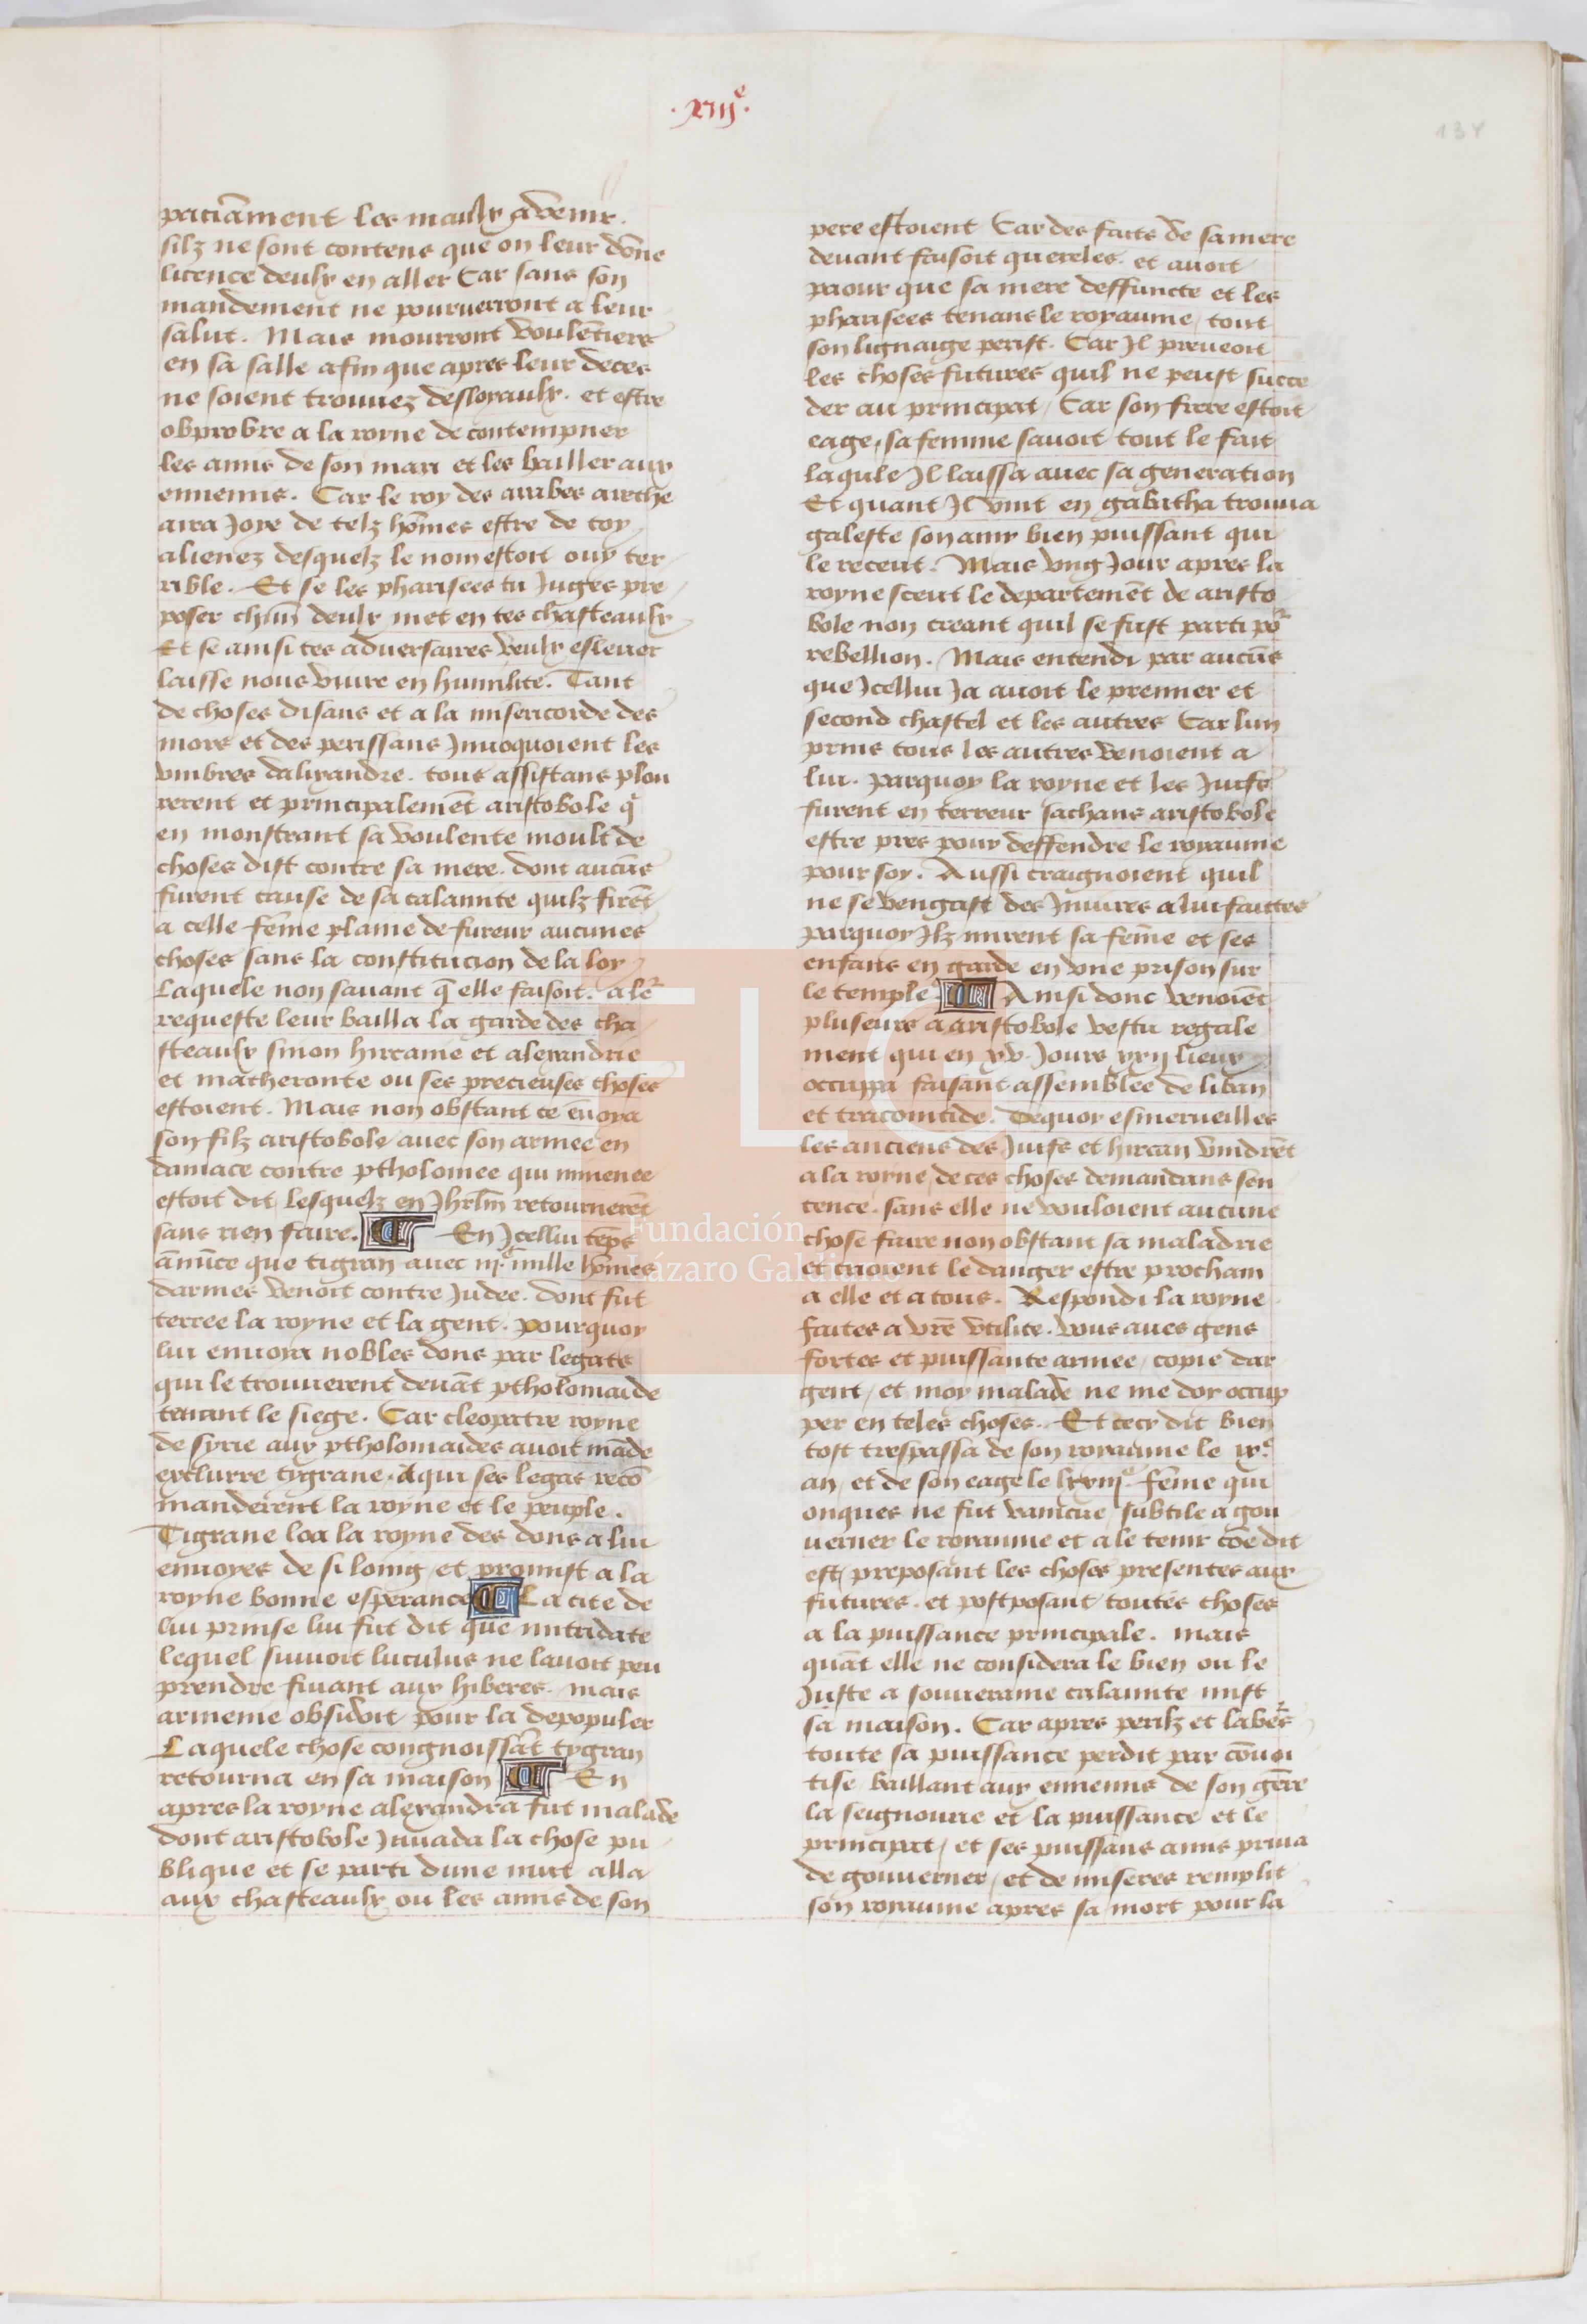 .xiije.
137
paciāment les maulx advenir.
silz ne sont contens que on leur dōne
licence deulx en aller Car sans son
mandement ne pourverront a leur
salut. Mais mourront voulētiers
en sa salle afin que apres leur deces
ne soient trouvez desloyaulx. et estre
obprobre a la royne de contempner
les amis de son mari et les bailler aux
ennemis. Car le roy des arabes arethe
aira Joye de telz hōmes estre de toy
alienez desquelz le nom estoit ouy ter
rible. Et se les pharisees tu Juges pre
poser chūn deulx met en tes chasteaulx
Et se ainsi tes adversaires veulx eslever
laisse nous vivre en humilite. Tant
de choses disans et a la misericorde des
mors et des perissans Jnvoquoient les
umbres dalixandre. tous assistans plou
rerent et principalemēt aristobole q
en monstrant sa voulente moult de
choses dist contre sa mere. dont aucūs
furent cause de sa calamite quilz firēt
a celle fēme plaine de fureur aucunes
choses sans la constitucion de la loy
Laquele non savant q̄ elle faisoit. a le
requeste leur bailla la garde des cha
steaulx sinon hircanie et alexandrie
et matheronte ou ses precieuses choses
estoient. Mais non obstant ce ēvoya
son filz aristobole avec son armee en
damace contre ptholomee qui minenee
estoit dit lesquelz en Jhrlm̄ retournerēt
sans rien faire. En Jcellui tēps
ānūce que tigran avec iij.c mille hōmes
darmes venoit contre Judee. dont fut
terree la royne et la gent. pourquoy
lui envoya nobles dons par legats
qui le trouverent devāt ptholomaide
tenant le siege. Car cleopatre royne
de syrie aux ptholomaides avoit māde
exclurre tygrane. a qui ses legas recō
manderent la royne et le peuple.
Tigrane loa la royne des dons a lui
envoyes de si loing et promist a la
royne bonne esperance La cite de
lui prinse lui fut dit que mitridate
lequel suivoit luculus ne lavoit peu
prendre fuiant aux hiberes. mais
armenie obsidoit pour la depopuler
Laquele chose congnoissāt tygran
retourna en sa maison En
apres la royne alexandra fut malade
dont aristobole Jnvada la chose pu
blique et se parti dune nuit alla
aux chasteaulx ou les amis de son
pere estoient Car des faits de sa mere
devant faisoit quereles. et avoit
paour que sa mere deffuncte et les
pharisees tenans le royaume tout
son lignaige perist. Car Jl preveoit
les choses futures quil ne peust succe
der au principat Car son frere estoit
eage, sa femme savoit tout le fait
laqule Jl laissa avec sa generation
Et quant Jl vint en gabatha trouva
galeste son amy bien puissant qui
le receut. Mais ung Jour apres la
royne sceut le departemēt de aristo
bole non creant quil se fust parti po
rebellion. Mais entendi par aucūs
que Jcellui Ja avoit le premier et
second chastel et les autres Car lun
prins tous les autres venoient a
lui. parquoy la royne et les Juifs
furent en terreur sachans aristobole
estre pres pour deffendre le royaume
pour soy. Aussi craignoient quil
ne se vengast des Jniures a lui faittes
parquoy Jlz mirent sa fēme et ses
enfans en garde en une prison sur
le temple Ainsi donc venoiēt
pluseurs a aristobole vestu regale
ment qui en xv. Jours xxij lieux
occuppa faisant assemblee de liban
et tracomtide. Dequoy esmerveilles
les anciens des Juifs et hircan vindrēt
a la royne de ces choses demandans sen
tence. sans elle ne vouloient aucune
chose faire non obstant sa maladie
et crioient le danger estre prochain
a elle et a tous. Respondi la royne
faites a vrē utilite. vous aves gens
fortes et puissante armee, copie dar
gent, et moy malade ne me doy occup
per en teles choses. Et cecy dit bien
tost trespassa de son royaume le ix.e
an et de son eage le lxxiij.e fēme qui
onques ne fut vaincue, subtile a gou
verner le royaume et a le tenir cōe dit
est, preposant les choses presentes aux
futures. et postposant toutes choses
a la puissance principale. mais
quāt elle ne considera le bien ou le
Juste a souveraine calamite mist
sa maison. Car apres perilz et labers
toute sa puissance perdit par cōvoi
tise baillant aux ennemis de son gēre
la seignourie et la puissance et le
principat, et ses puissans amis priva
de gouverner, et de miseres remplit
son royaume apres sa mort pour la
FLG
Fundación
Lázaro Galdiano